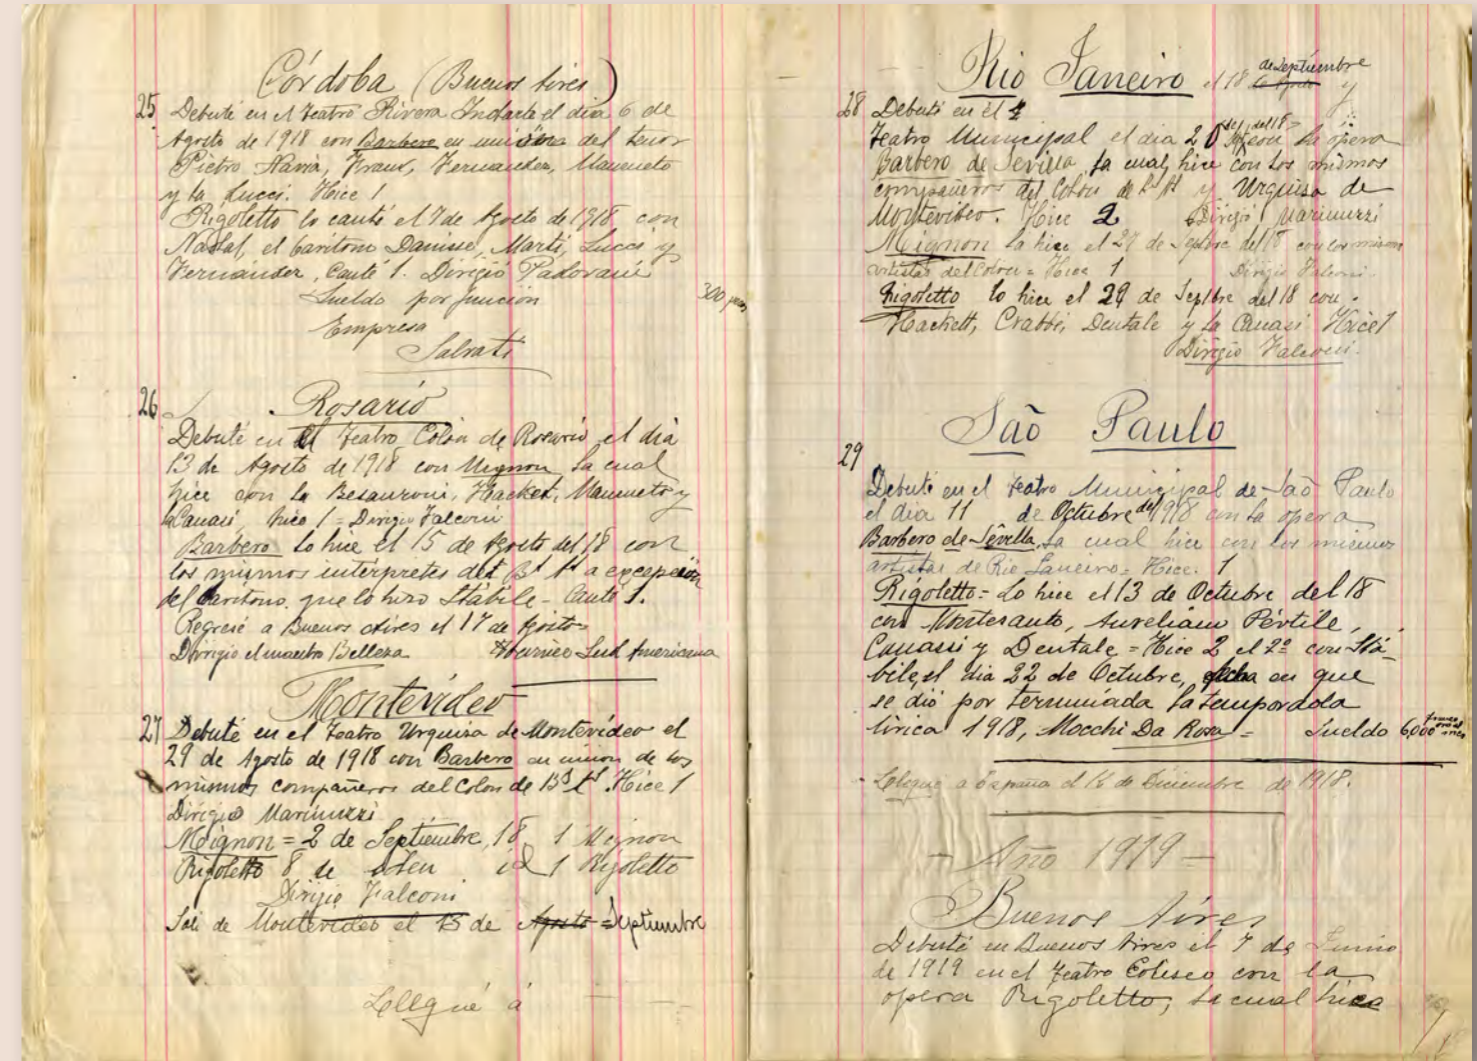 Córdoba (Buenos Aires)
25 Debuté en el Teatro Rivera Indarte el dia 6 de
Agosto de 1918 con Barbero en unión del tenor
Pietro Navia, Franz, Fernandez, Manneto
y la Lucci. Hice 1
Rigoletto lo canté el 7 de Agosto de 1918 con
Nadal, el baritono Danisse, Martí, Lucci y
Fernandez, Canté 1. Dirigió Padovani
Sueldo por función 300
Empresa
Salvati
26 Rosario
Debuté en el Teatro Colón de Rosario el dia
13 de Agosto de 1918 con Mignon la cual
hice con la Besanzoni, Hacket, Manneto y
la Canasi, hice 1 = Dirigio Falconi
Barbero lo hice el 15 de Agosto del 18 con
los mismos interpretes del Bs As a excepción
del baritono que lo hizo Stábile - Canté 1.
Regresé a Buenos Aires el 17 de Agosto
Dirigio el maestro Belleza Sud Americana
Montevideo
27 Debuté en el Teatro Urquiza de Montevideo el
29 de Agosto de 1918 con Barbero en unión de los
mismos compañeros del Colon de Bs As. Hice 1
Dirigió Marinuzzi
Mignon = 2 de Septiembre, 18 1 Mignon
Rigoletto 8 de id 1 Rigoletto
Dirigio Falconi
Salí de Montevideo el 15 de Agosto = Septiembre
Lllegué á
Rio Janeiro el 18 de Septiembre y
28 Debuté en el
Teatro Municipal el dia 20 del 18 = con la ópera
Barbero de Sevilla la cual hice con los mismos
compañeros del Colón de Bs As y Urquisa de
Montevideo. Hice 2 Dirigió Marinuzzi
Mignon la hice el 27 de Septbre del 18 con los mismos
artistas del Colon = Hice 1 Dirigio Falconi.
Rigoletto lo hice el 29 de Septbre del 18 con
Hackett, Crabbé, Dentale y la Canasi Hice 1
Dirigio Falconi.
Saõ Paulo
29
Debuté en el Teatro Municipal de Saõ Paulo
el dia 11 de Octubre del 1918 con la opera
Barbero de Sevilla, la cual hice con los mismos
artistas de Rio Janeiro = Hice. 1
Rigoletto = Lo hice el 13 de Octubre del 18
con Montesanto, Aureliano Pértile,
Canasi y Dentale = Hice 2 el 2º con Stá-
bile, el dia 22 de Octubre, fecha en que
se dió por terminada la temporada
lirica 1918, Mocchi Da Rosa = Sueldo 6,000
Lllegue a España el 16 de Diciembre de 1918.
- Año 1919 -
Buenos Aires
Debuté en Buenos Aires el 7 de Junio
de 1919 en el Teatro Coliseo con la
opera Rigoletto, la cual hice